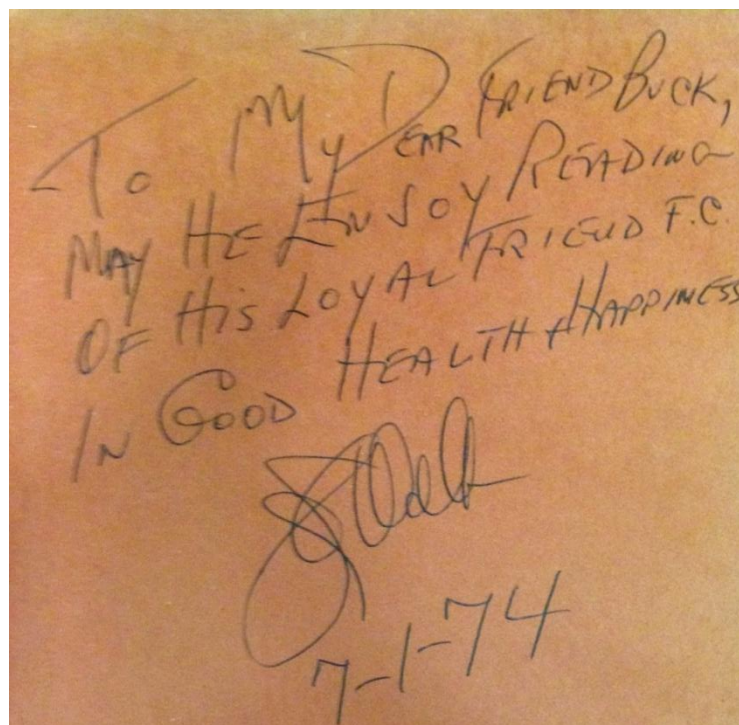 To My Dear Friend Buck,
May He Enjoy Reading
Of His Loyal Friend F.C.
In Good Health & Happiness
7-1-74